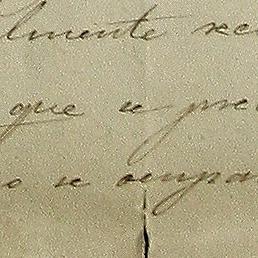 lmente rec
que se pre
o se ocupa